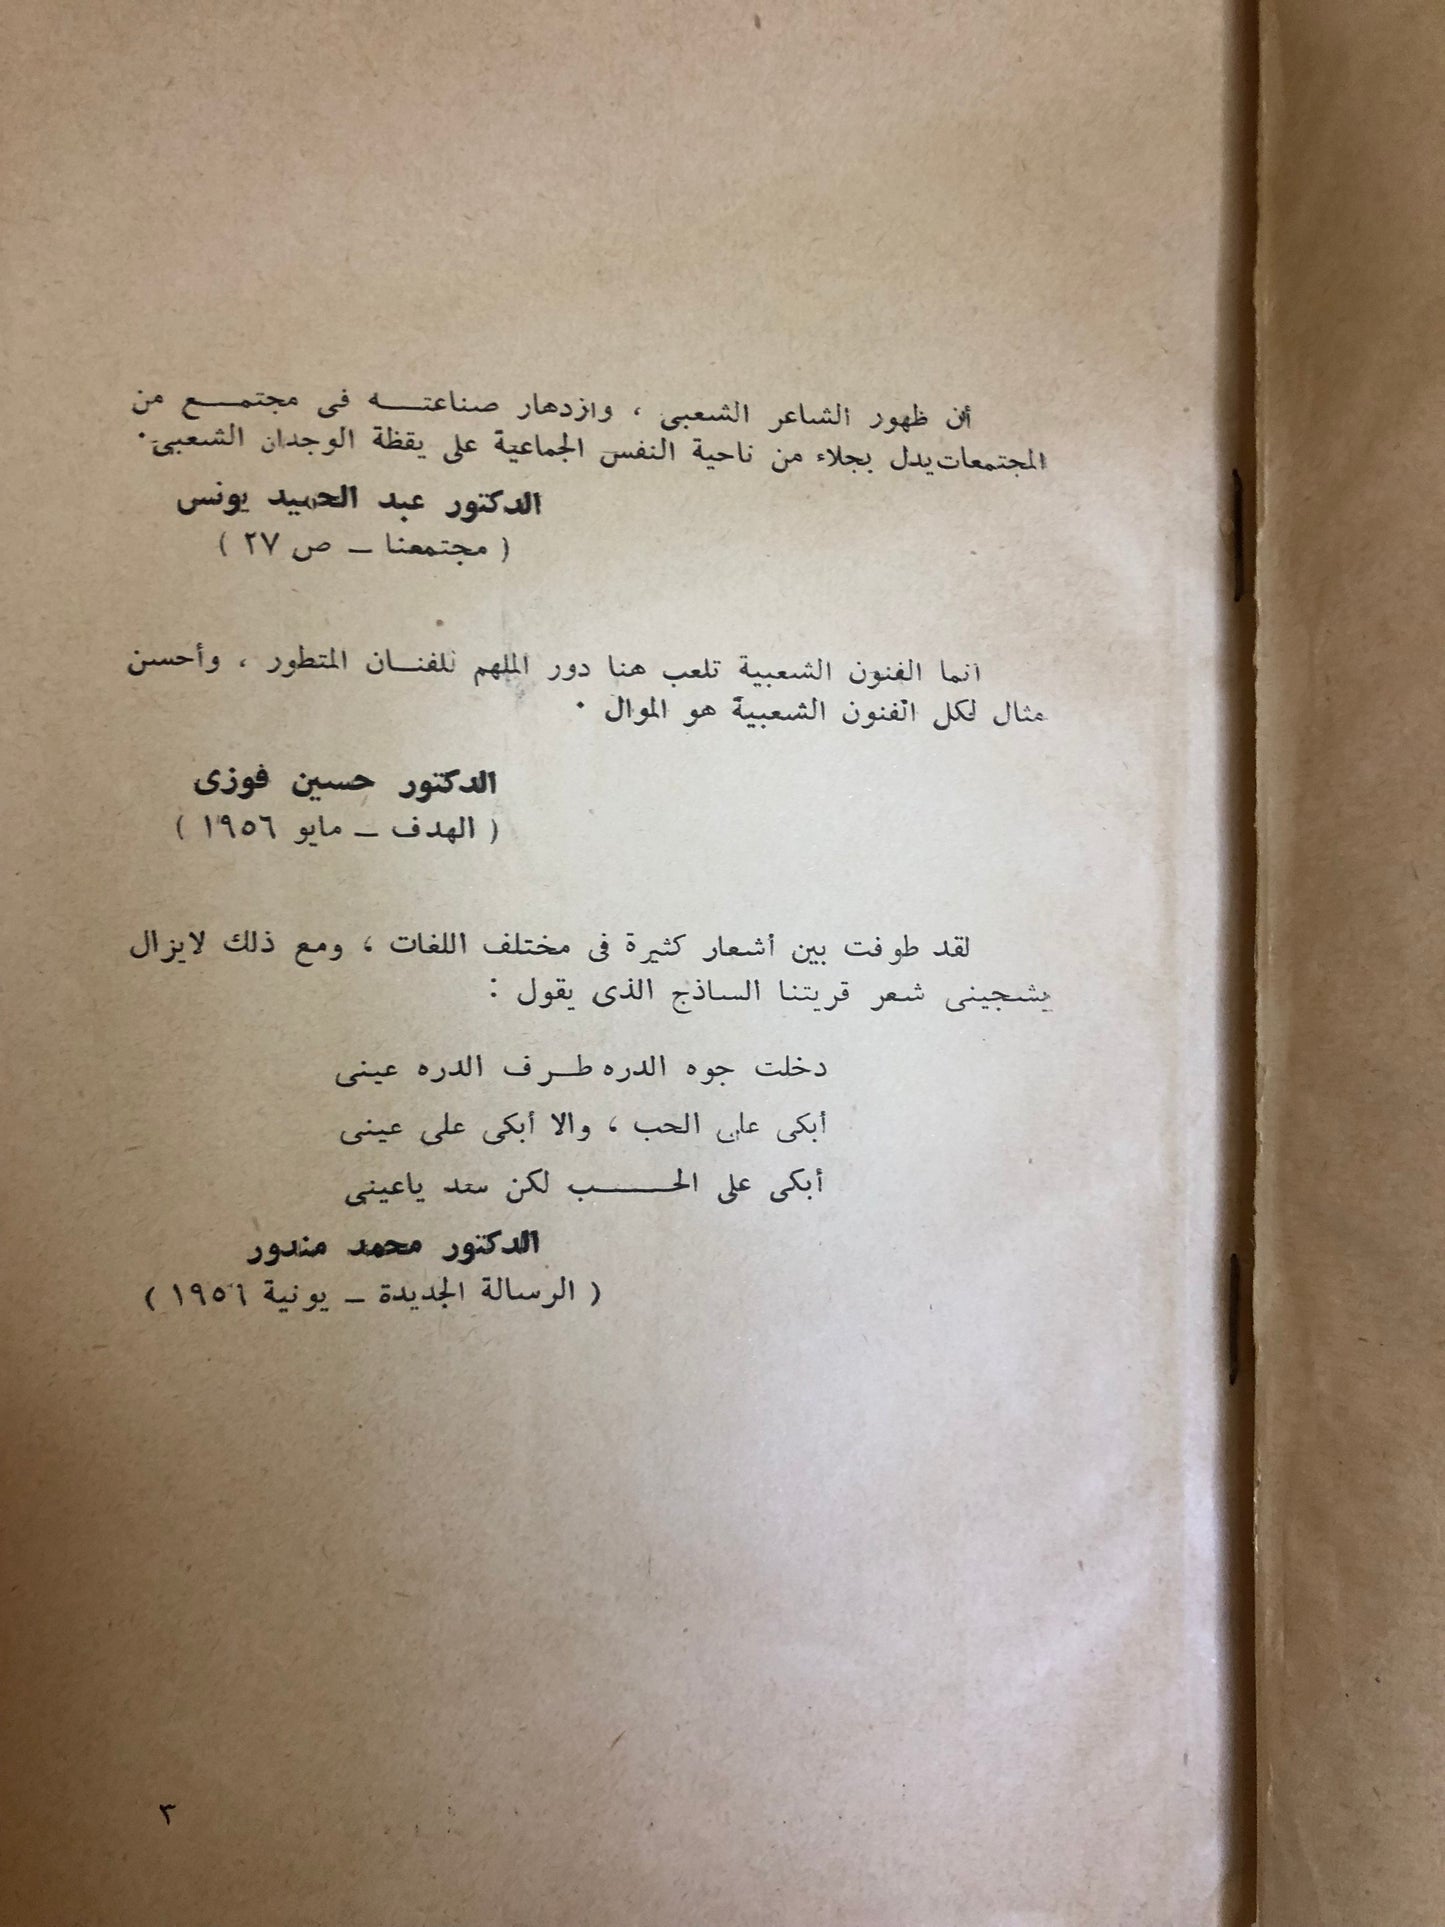 أن ظهور الشاعر الشعبى ، وازدهار صناعته فى مجتمع من
المجتمعات يدل بجلاء من ناحية النفس الجماعية على يقظة الوجدان الشعبى .
الدكتور عبد الحميد يونس
( مجتمعنا ــ ص ٢٧ )
انما الفنون الشعبية تلعب هنا دور الملهم للفنان المتطور ، وأحسن
مثال لكل الفنون الشعبية هو الموال .
الدكتور حسين فوزى
( الهدف ــ مايو ١٩٥٦ )
لقد طوفت بين أشعار كثيرة فى مختلف اللغات ، ومع ذلك لايزال
يشجينى شعر قريتنا الساذج الذى يقول :
دخلت جوه الدره طرف الدره عينى
أبكى على الحب ، والا أبكى على عينى
أبكى على الحب لكن ستد ياعينى
الدكتور محمد مندور
( الرسالة الجديدة ــ يونية ١٩٥٦ )
٣